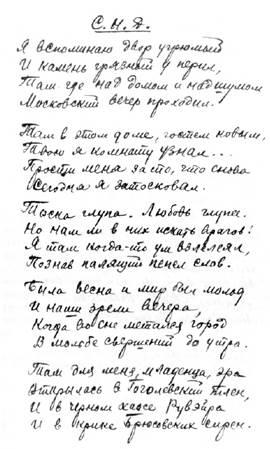 С. Н. Д.
Я вспоминаю двор угрюмый
И камень грязный у перил,
Там где над домом и над шумом
Московский вечер проходил.
Там в этом доме, гостем новым,
Твою я комнату узнал...
Прости меня за то, что снова
Сегодня я затосковал.
Тоска глупа. Любовь глупа.
Но нам ли в них искать врагов!
Я там когда-то ум взлелеял,
Познав палящий пепел слов.
Была весна и мир был молод
И наши зрели вечера,
Когда во сне метался город
В мольбе свершений до утра.
Там для меня, младенца, эра
Открылась в Гоголевский плен,
И в чёрном хаосе Рувэйра
И в крике Брюсовских сирен.